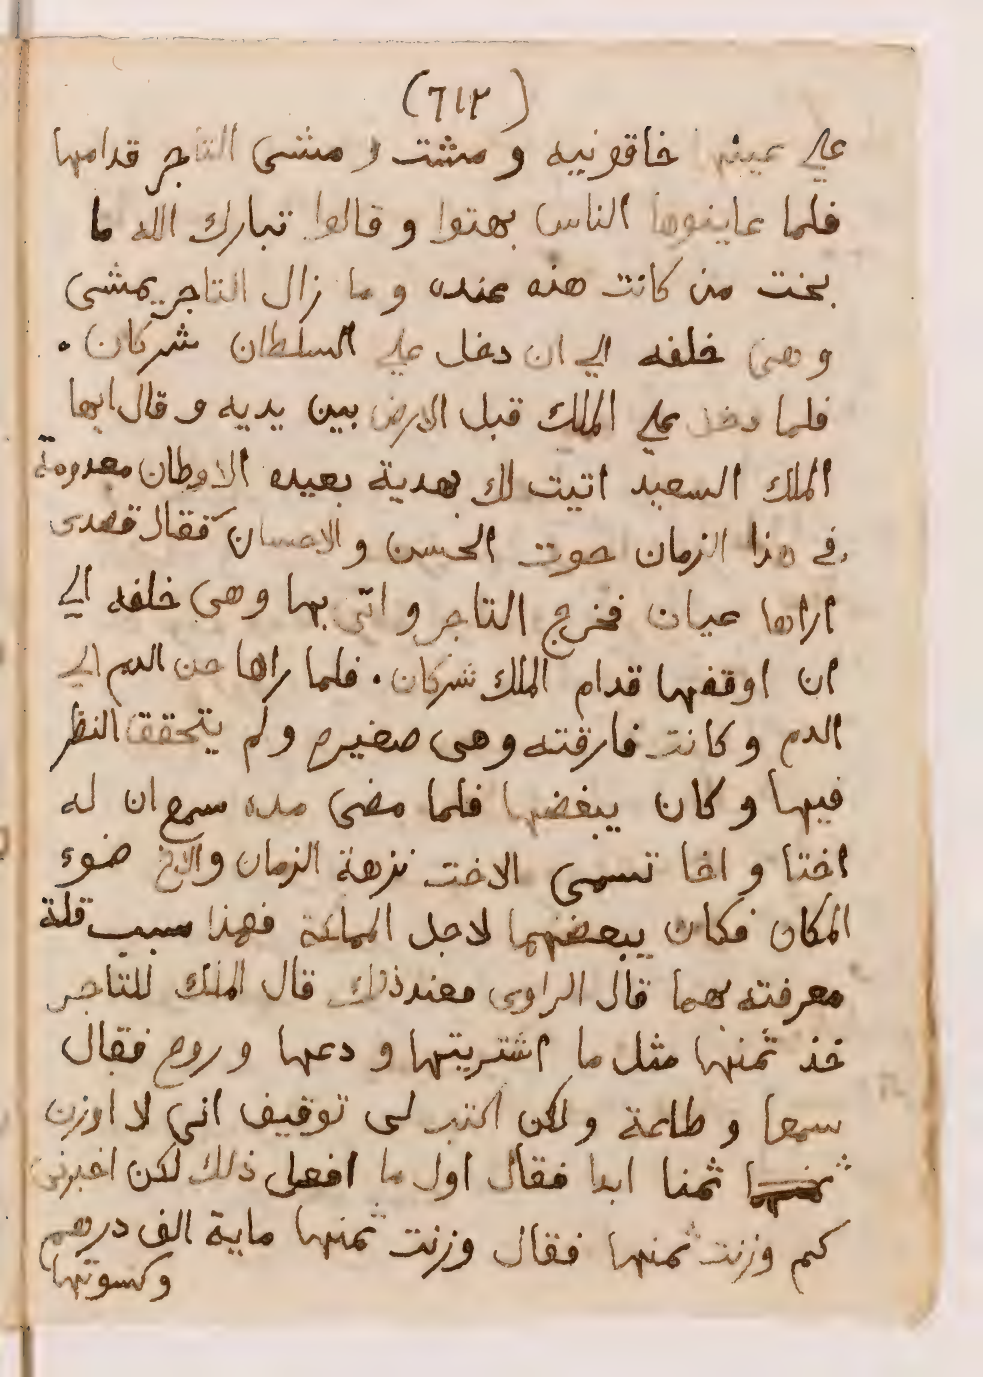 (٦١٢)
علي عينها خاقونيه و مشت و مشى التاجر قدامها
فلما عاينوها الناس بهتوا و قالوا تبارك الله ما
بخت من كانت هذه عنده و ما زال التاجر يمشى
و هى خلفه الي ان دخل علي السلطان شركان .
فلما دخل علي الملك قبل الارض بين يديه و قال ايها
الملك السعيد اتيت لك بهدية بعيده الاوطان معدومة
في هذا الزمان حوت الحسن و الاحسان فقال قصدى
اراها عيان فخرج التاجر و اتى بها وهى خلفه الي
ان اوقفها قدام الملك شركان . فلما راها حن الدم الي
الدم و كانت فارقته وهى صغيره ولم يتحقق النظر
فيها و كان يبغضها فلما مضى مده سمع ان له
اختا و اخا تسمى الاخت نزهة الزمان والاخ ضوء
المكان فكان يبغضهما لاجل المملكة فهذا سبب قلة
معرفته بهما قال الراوى فعند ذلك قال الملك للتاجر
خذ ثمنها مثل ما اشتريتها و دعها و روح فقال
سمعا و طاعة و لكن اكتب لى توقيف انى لا اوزن
ثمنا ابدا فقال اول ما افعل ذلك لكن اخبرنى
كم وزنت ثمنها فقال وزنت ثمنها ماية الف درهم
وكسوتها